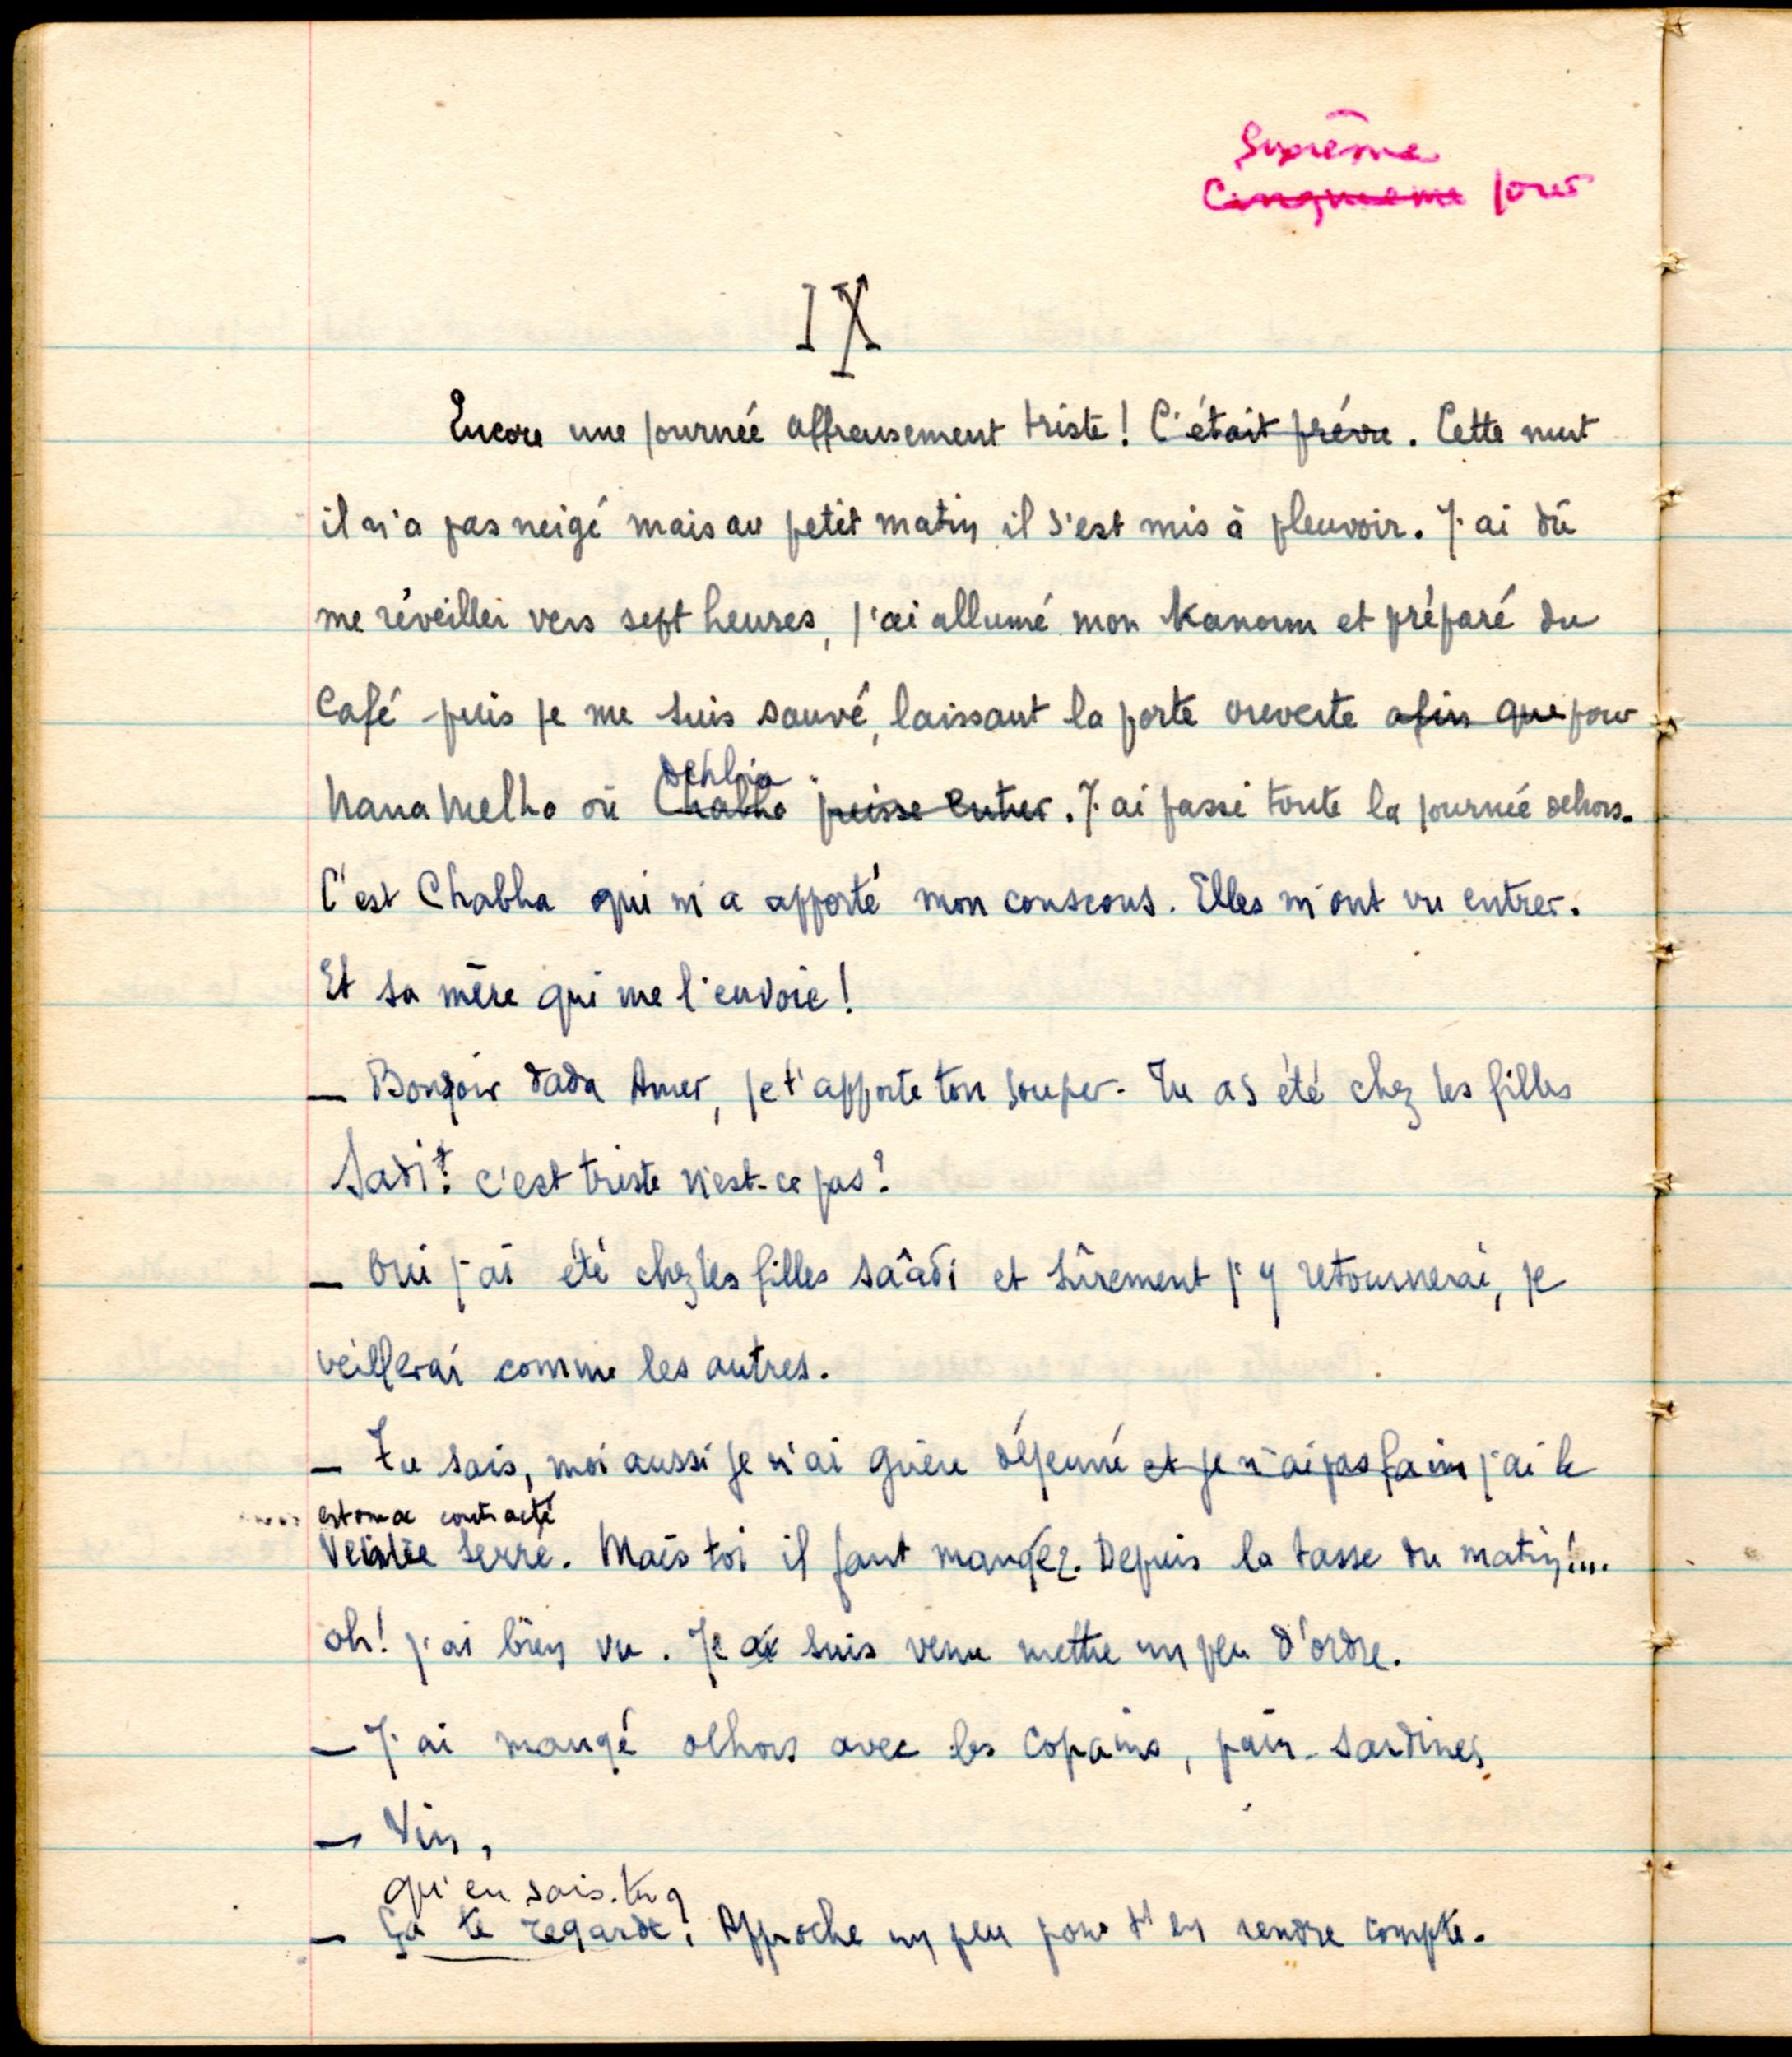 Suprême
Cinquieme jour
IX
Encore une journée affreusement triste! C'était prévu. Cette nuit
il n'a pas neigé mais au petit matin il s'est mis à pleuvoir. J'ai dû
me réveiller vers sept heures, j'ai allumé mon kanoun et préparé du
café puis je me suis sauvé, laissant la porte ouverte afin que pour
Dehbia
Nana Melha ou Chabha puisse entrer. J'ai passé toute la journée dehors.
C'est Chabha qui m'a apporté mon couscous. Elles m'ont vu entrer.
Et sa mère qui me l'envoie!
— Bonsoir dada Amer, je t'apporte ton souper. Tu as été chez les filles
Sadi? c'est triste n'est-ce pas?
— Oui j'ai été chez les filles saâdi et sûrement j'y retournerai, je
veillerai comme les autres.
— Tu sais, moi aussi je n'ai guère déjeuné et je n'ai pas faim j'ai le
estomac contracté
ventre serré. Mais toi il faut manger. Depuis la tasse du matin!...
oh! j'ai bien vu. Je ai suis venu mettre un peu d'ordre.
— J'ai mangé dehors avec les copains, pain-sardines
— Vin,
qu'en sais-tu?
— Ça te regarde. Approche un peu pour t'en rendre compte.